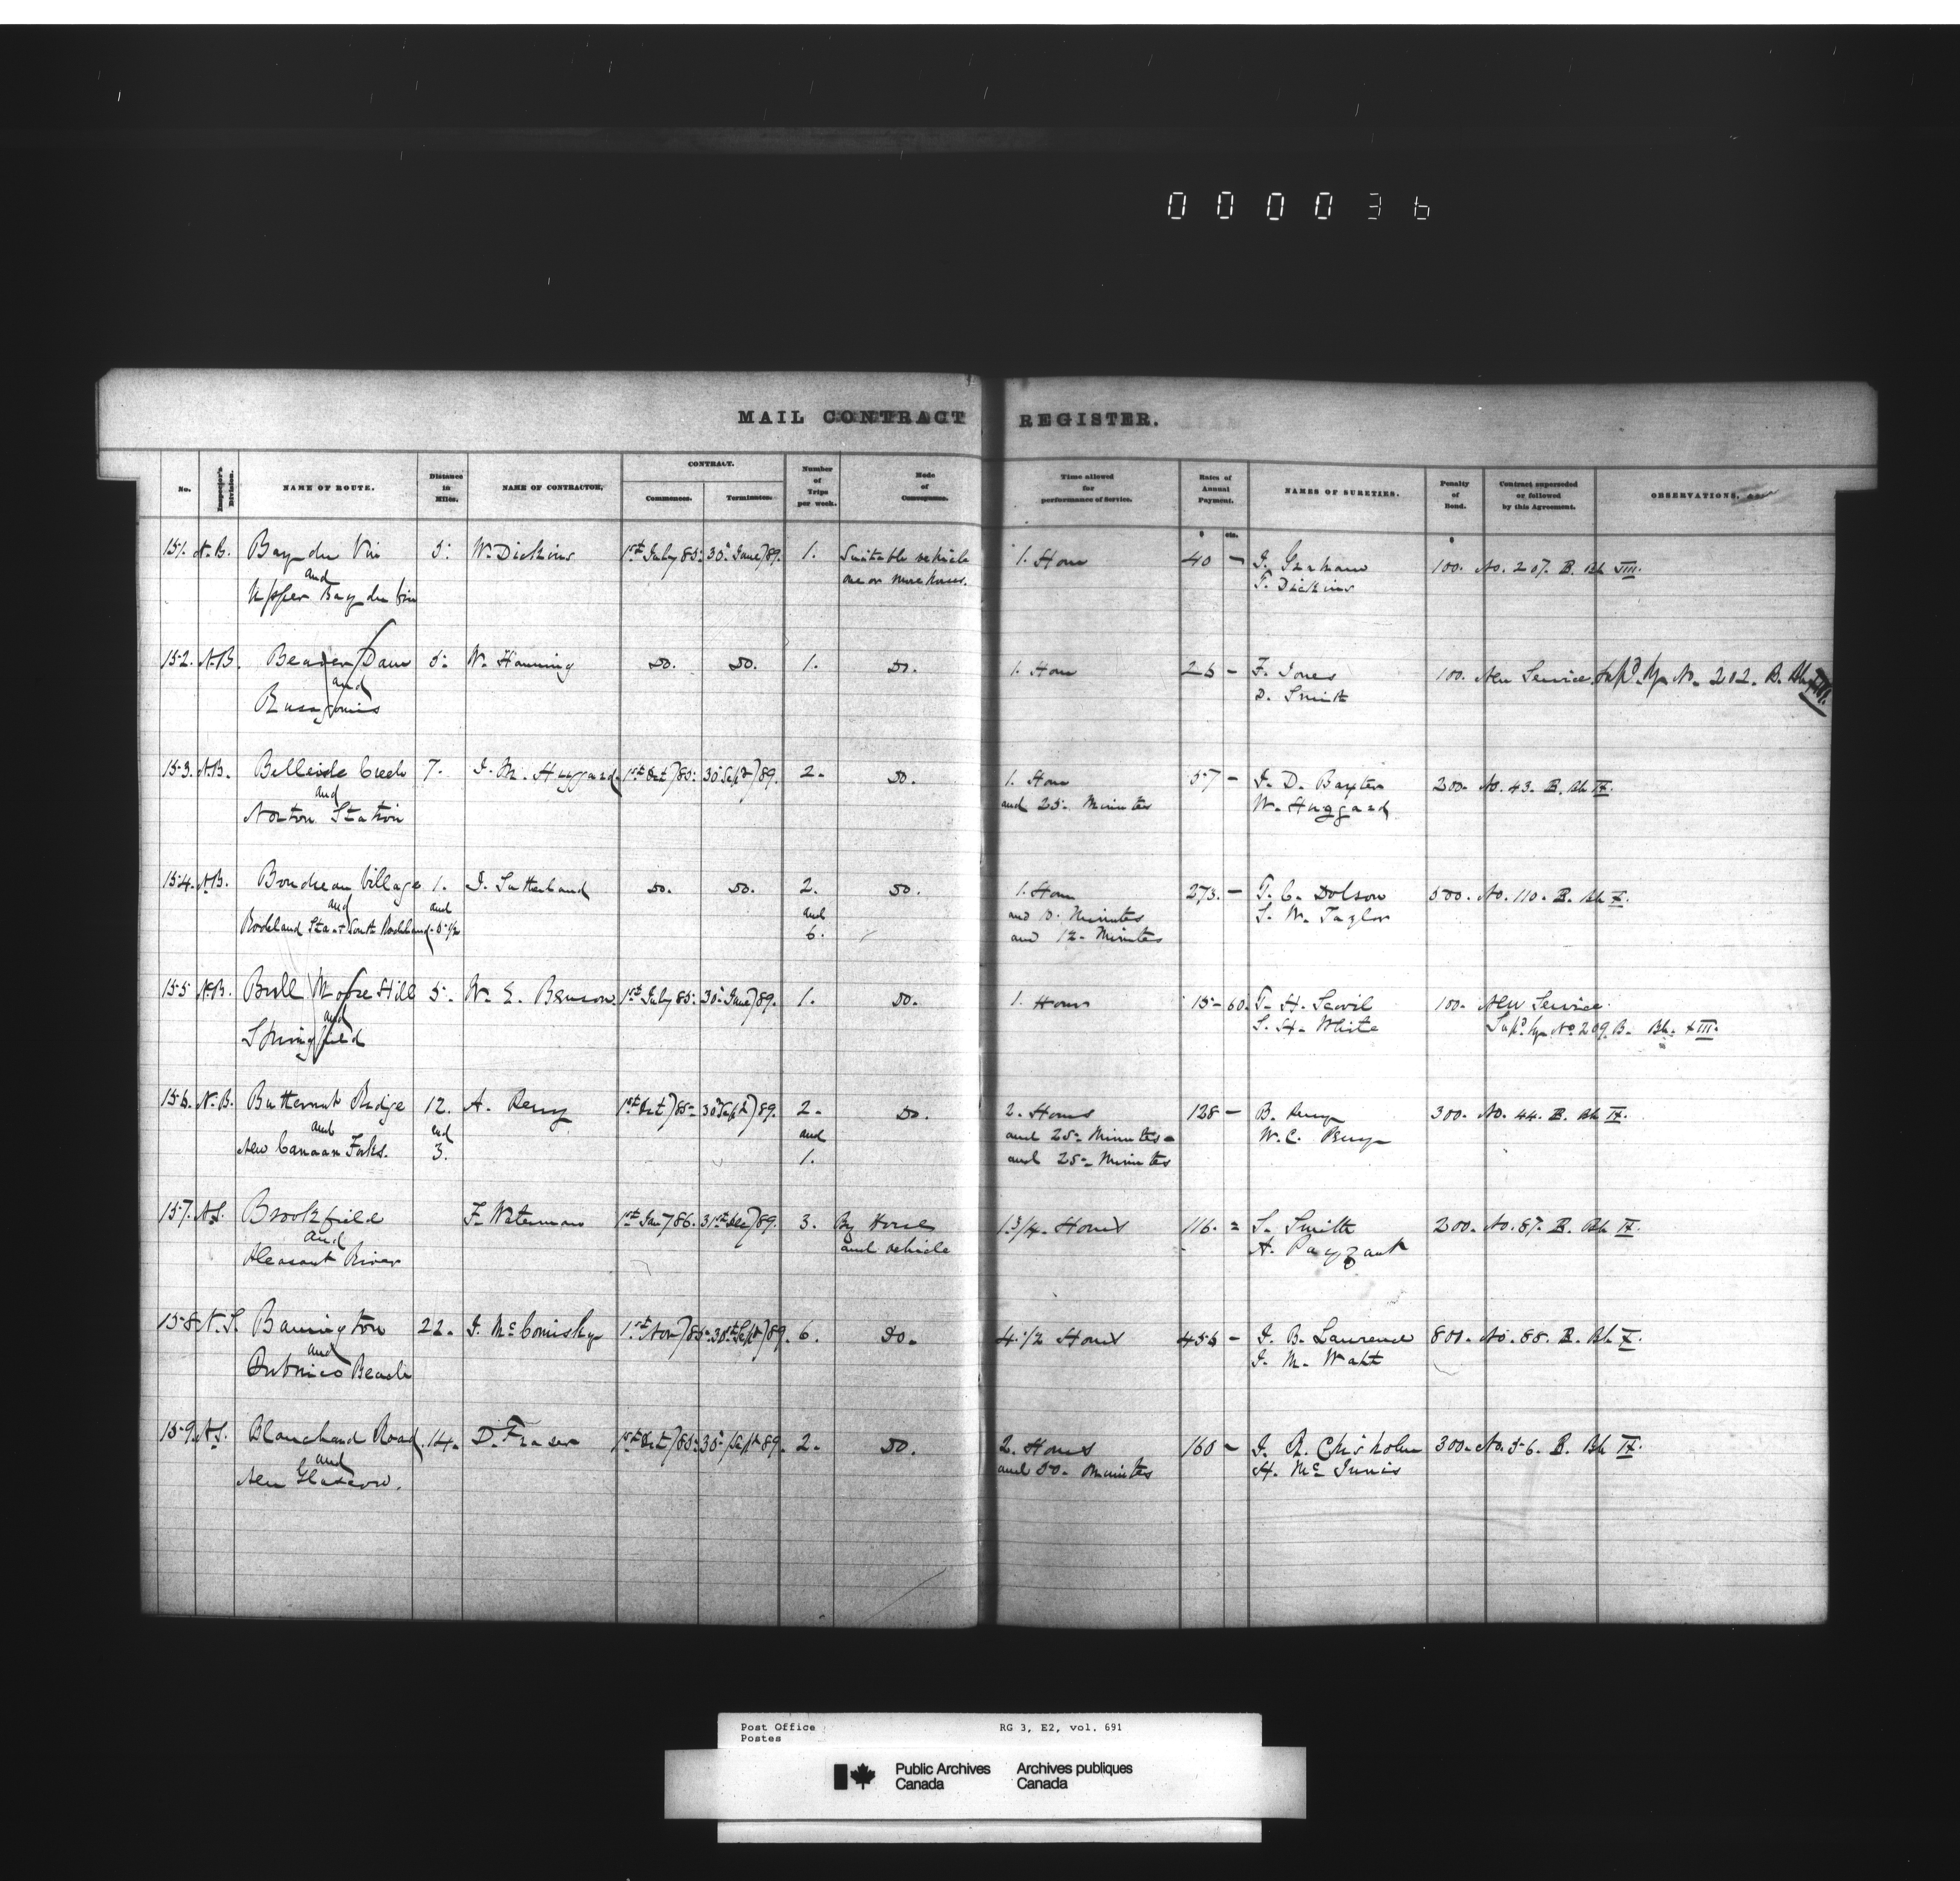 000036
MAIL CONTRACT REGISTER.
No. Inspector's Division. NAME OF ROUTE. Distance in Miles. NAME OF CONTRACTOR. CONTRACT. Commences. Terminates. Number of Trips per week. Mode of Conveyance. Time allowed for performance of Service. Rates of Annual Payment. NAMES OF SURETIES. Penalty of Bond. Contract superseded or followed by this Agreement. OBSERVATIONS.
$ cts. $
151. N.B. Bay du Vin 5. W. Dickins 1st July 85. 30 June 89. 1. Suitable vehicle 1. Hour 40 – J. Graham 100. No. 207. B. Bk VIII.
and one or more horses. T. Dickins
Upper Bay du Vin
152. N.B. Beaver Dam 5. W. Hanning Do. Do. 1. Do. 1. Hour 26 – F. Jones 100. New Service. Supd. by No. 202. B. Bk XIII.
and D. Smith
Rusagonis
153. N.B. Belleisle Creek 7. J. M. Huggard 1st Oct 85. 30 Sept 89. 2. Do. 1. Hour 57 – J. D. Baxter 200. No. 43. B. Bk IX.
and and 25. Minutes W. Huggard
Norton Station
154. N.B. Boudreau Village 1. J. Sutherland Do. Do. 2. Do. 1. Hour 273. – T. C. Dolson 500. No. 110. B. Bk X.
and and and and 10. Minutes S. W. Taylor
Rockland Sta. + South Rockland 5 1/2 6. and 12. Minutes
155 N.B. Bull Moose Hill 5. W. E. Benson 1st July 85. 30 June 89. 1. Do. 1. Hour 15 – 60. T. H. Scovil 100. New Service.
and S. H. White Supd by No 209. B. Bk. XIII.
Springfield
156. N.B. Butternut Ridge 12. A. Perry 1st Oct 85. 30 Sept 89. 2. Do. 2. Hours 128 – B. Perry 300. No. 44. B. Bk IX.
and and and and 25. Minutes W. C. Perry
New Canaan Forks. 3. 1. and 25. Minutes
157. N.S. Brookfield F. Waterman 1st Jan 86. 31st Dec 89. 3. By Horse 1 3/4. Hours 116. = S. Smith 200. No. 87. B. Bk IX.
and and vehicle A. Payzant
Pleasant River
158 N.S. Barrington 22. J. McComisky 1st Nov 85. 30th Sept 89. 6. Do. 4. 1/2 Hours 456 – J. B. Lawrence 800. No. 88. B. Bk X.
and J. M. Watt
Pubnico Beach
159. N.S. Blanchard Road 14. D. Fraser 1st Oct 85. 30 Sept 89. 2. Do. 2. Hours 160 – J. R. Chisholm 300. No. 56. B. Bk IX.
and and 50. Minutes H. McInnis
New Glasgow.
Post Office RG 3, E2, vol. 691
Postes
Public Archives Archives publiques
Canada Canada